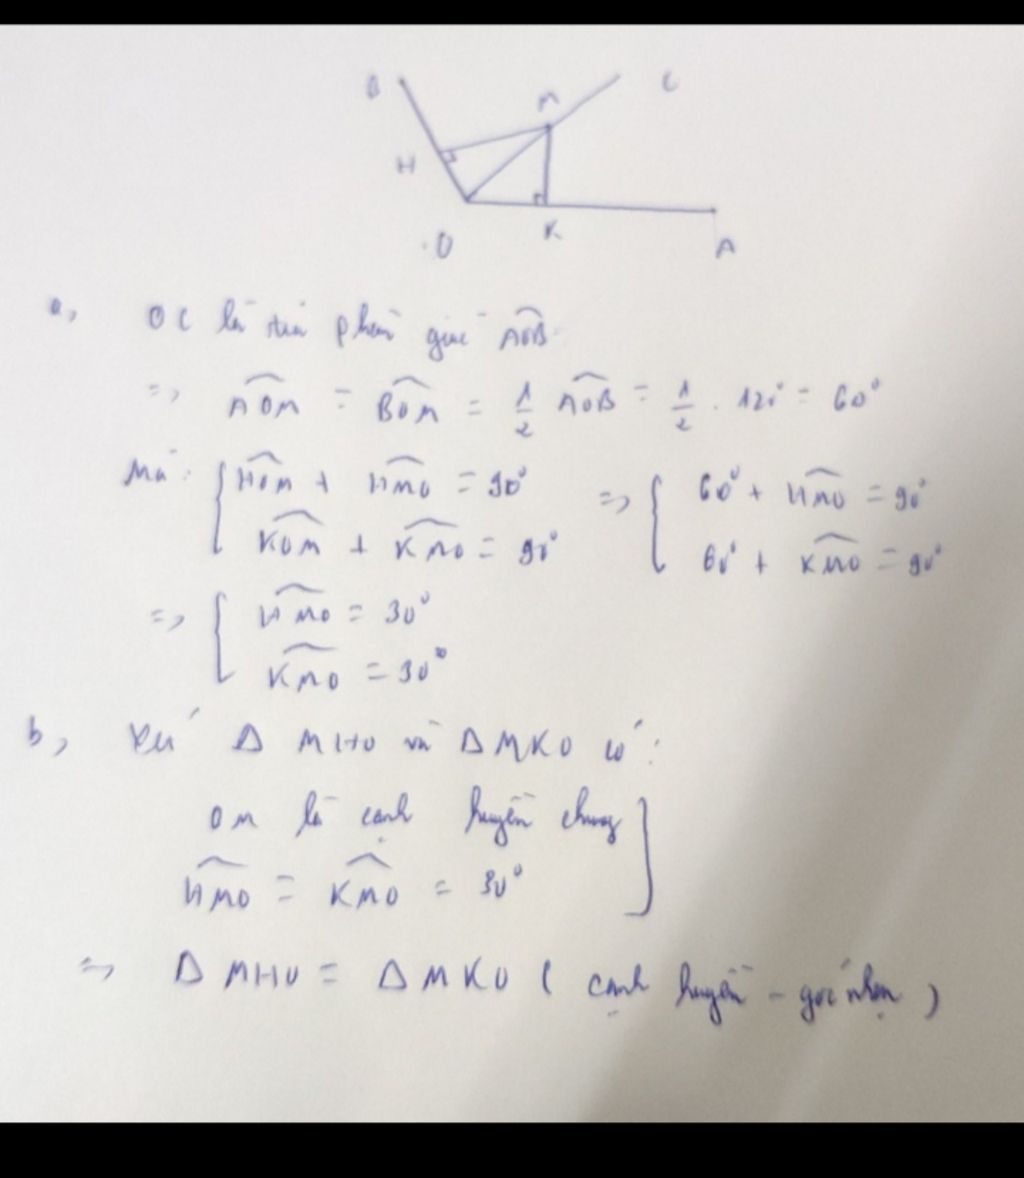 B
M
C
H
O
K
A
a, OC là tia phân giác \widehat{AOB}.
=> \widehat{AOM} = \widehat{BOM} = \frac{1}{2} \widehat{AOB} = \frac{1}{2} . 120° = 60°
Mà: { \widehat{HOM} + \widehat{HMO} = 90° => { 60° + \widehat{HMO} = 90°
\widehat{KOM} + \widehat{KMO} = 90° 60° + \widehat{KMO} = 90°
=> { \widehat{HMO} = 30°
\widehat{KMO} = 30°
b, Xét Δ MHO và Δ MKO có:
OM là cạnh huyền chung
\widehat{HMO} = \widehat{KMO} = 30°
=> Δ MHO = Δ MKO ( cạnh huyền - góc nhọn )